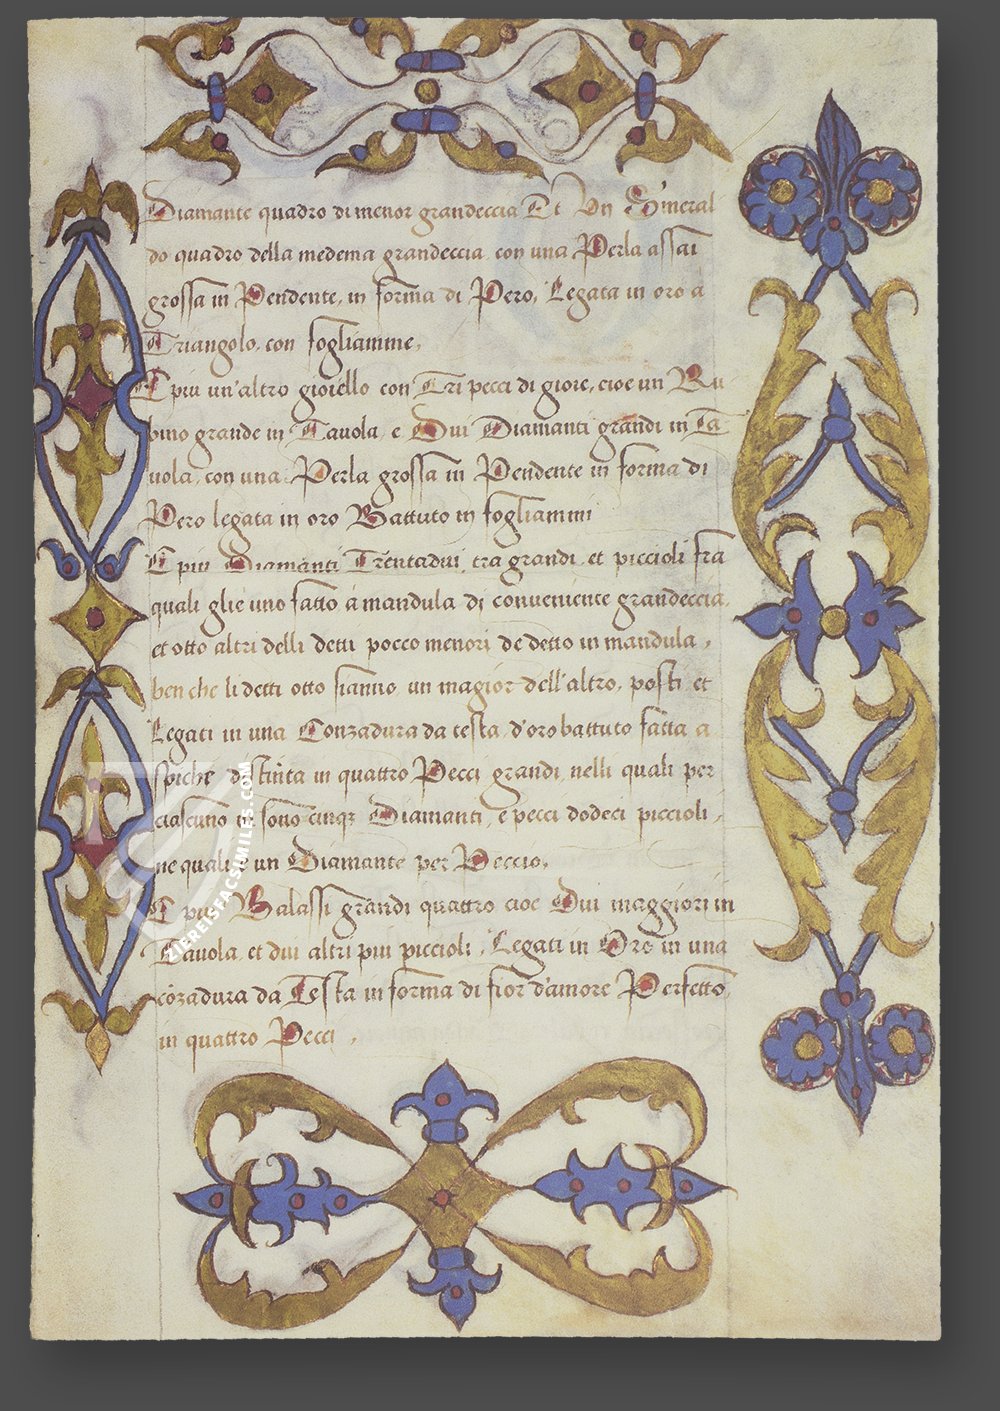 Diamante quadro di menor grandeccia Et Un Smeral
do quadro della medema grandeccia con una Perla assai
grossa in Pendente, in forma di Pero, Legata in oro a
Triangolo, con fogliamme,
E piu un'altro gioiello con Tri pecci di gioie, cioe un Ru
bino grande in Tauola, e Dui Diamanti grandi in Ta
uola, con una Perla grossa in Pendente in forma di
Pero legata in oro Battuto in fogliammi
E piu Diamanti Trentadui, tra grandi, et piccioli fra
quali glie uno fatto a mandula di conueniente grandeccia,
et otto altri delli detti pocco menori de detto in mandula,
ben che li detti otto sianno un magior dell'altro, posti et
Legati in una Conzadura da testa d'oro battuto fatta a
spiche distinta in quattro Pecci grandi, nelli quali per
ciascuno in sono cinq; Diamanti, e pecci dodeci piccioli,
ne quali e un Diamante per Peccio,
E piu Balassi grandi quattro cioe Dui maggiori in
Tauola, et dui altri piu piccioli, Legati in Oro in una
cõzadura da Testa in forma di fior d'amore Perfetto,
in quattro Pecci,
ZIEREISFACSIMILES.COM